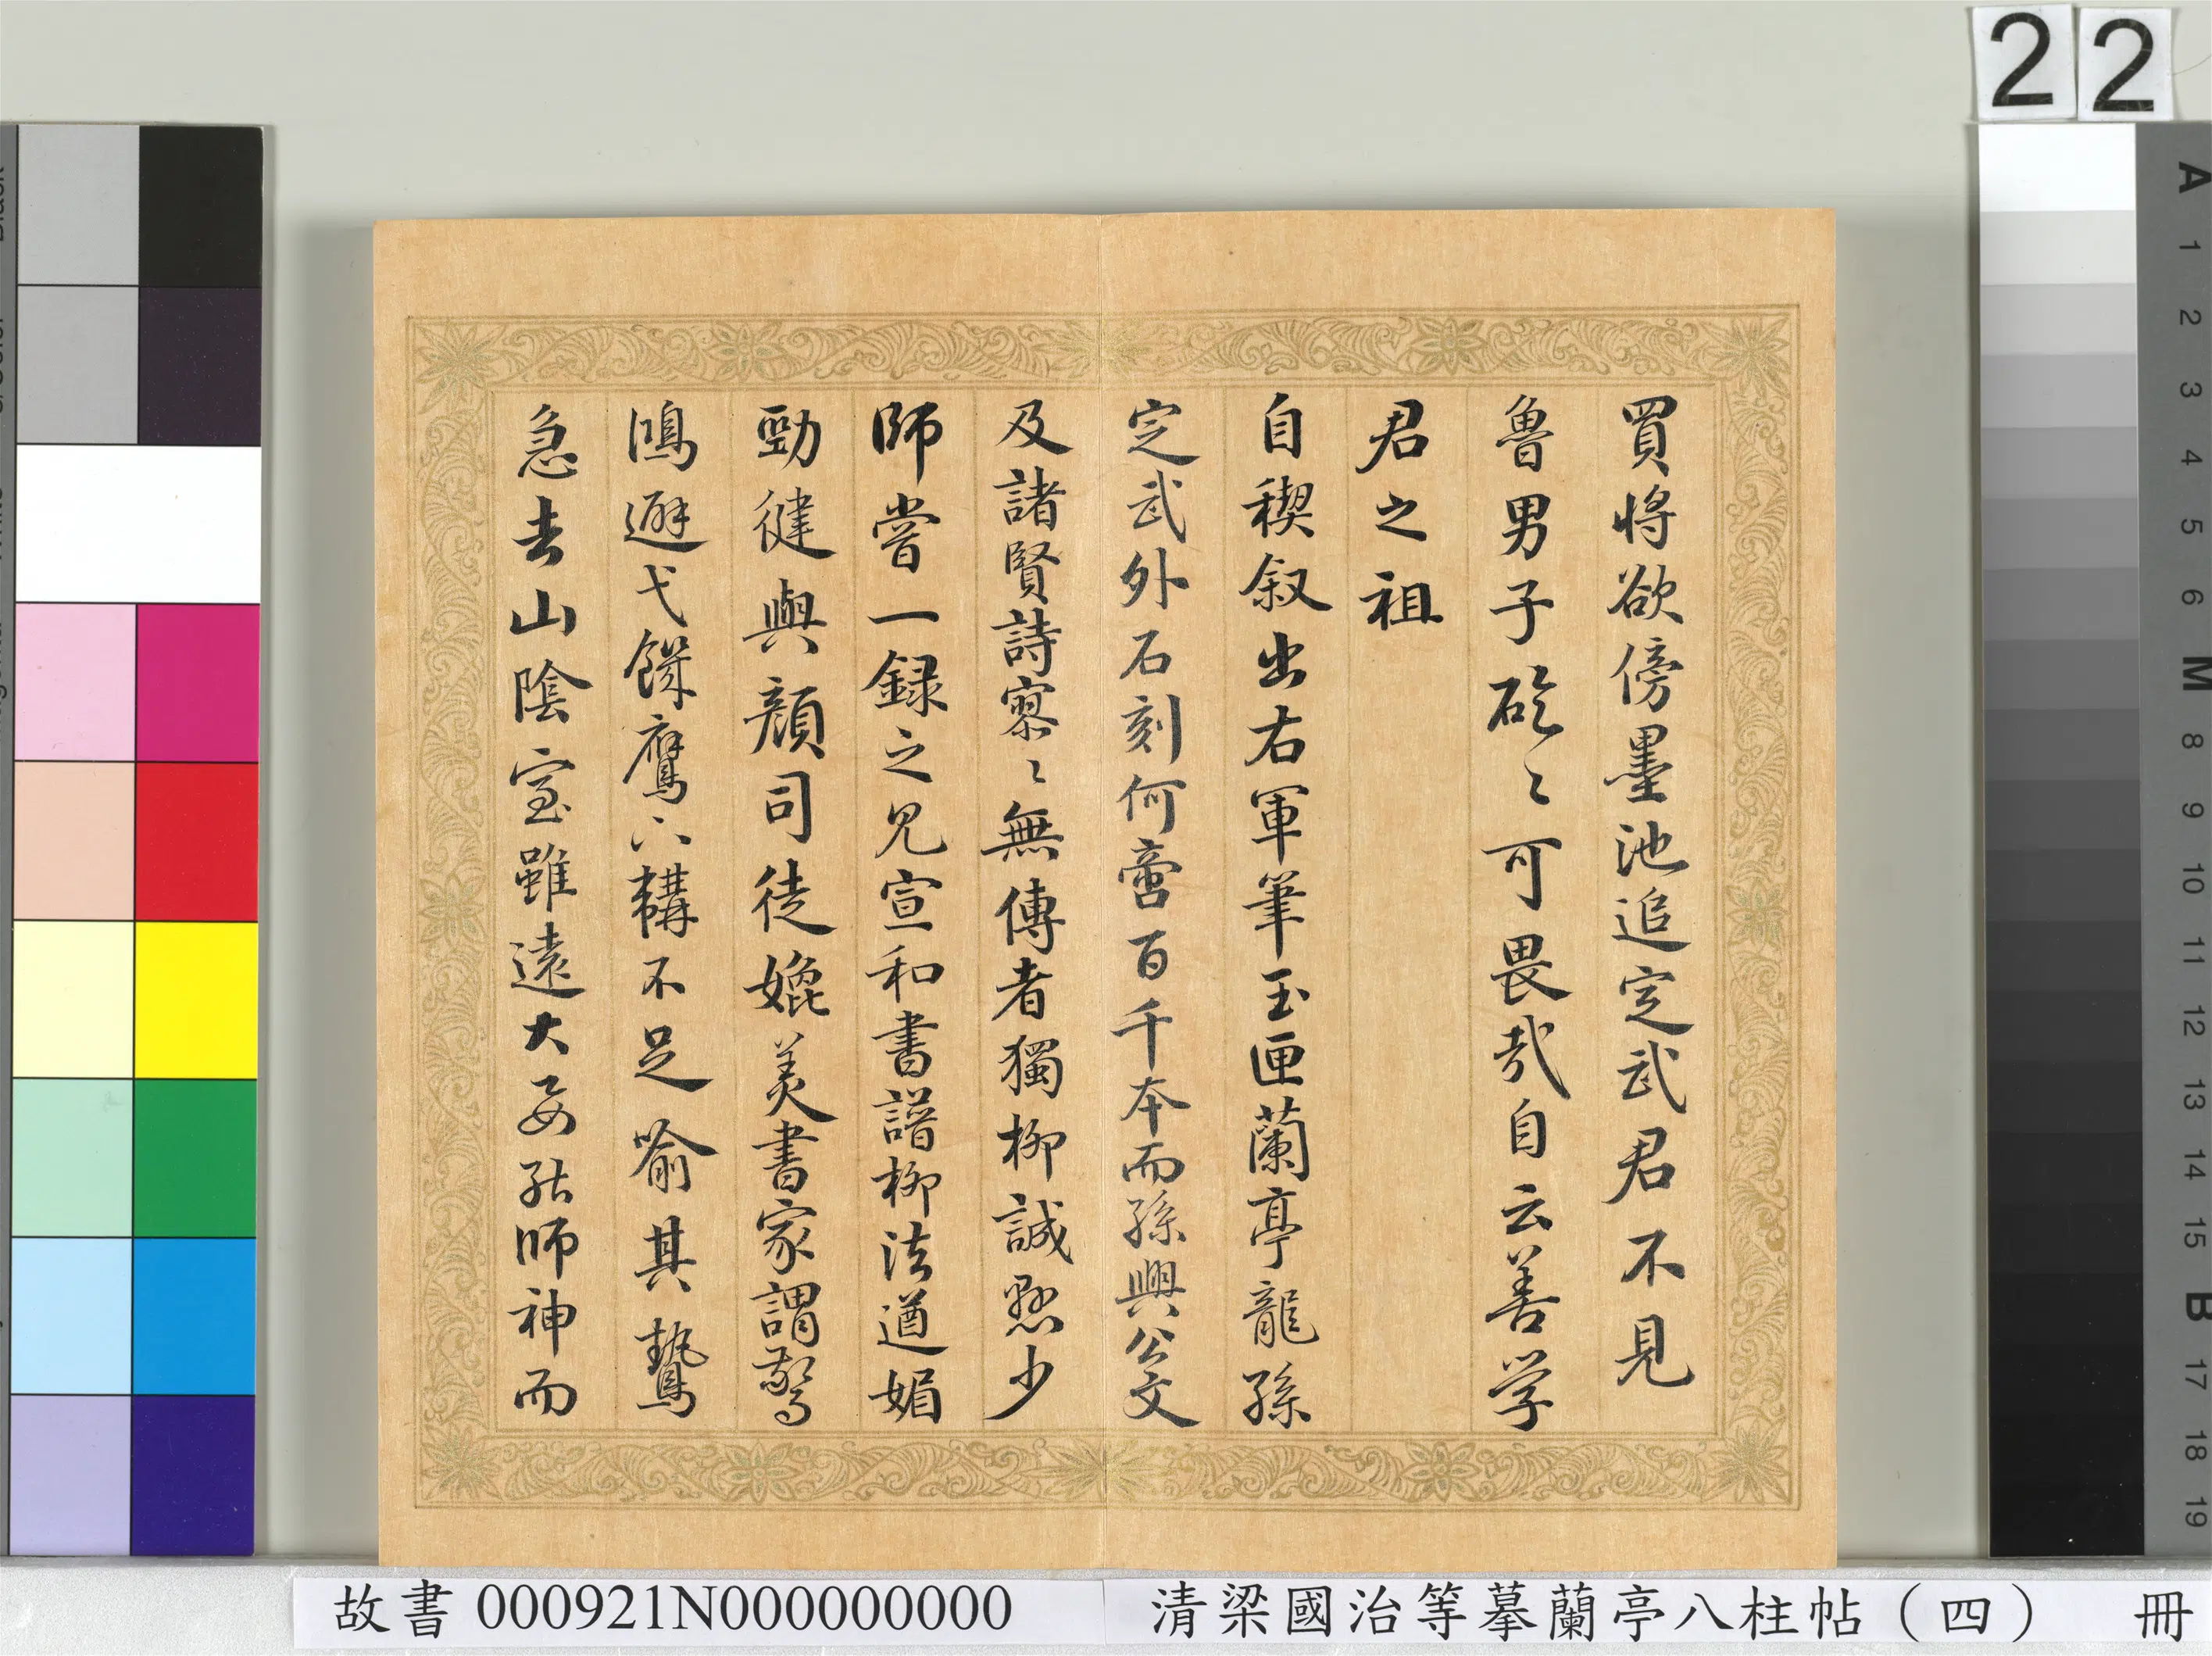 22
買將欲傍墨池追定武君不見
魯男子硁〻可畏哉自云善学
君之祖
自稧叙出右軍筆玉匣蘭亭龍孫
定武外石刻何啻百千本而孫興公文
及諸賢詩寥〻無傳者獨柳誠懸少
師嘗一録之見宣和書譜柳法遒媚
勁健與顔司徒媲美書家謂驚
鴻避弋饑鷹下韝不足喻其鷙
急去山陰室雖遠大要能師神而
A
1
2
3
4
5
6
M
8
9
10
11
12
13
14
15
B
17
18
19
故書 000921N000000000 清梁國治等摹蘭亭八柱帖（四） 冊